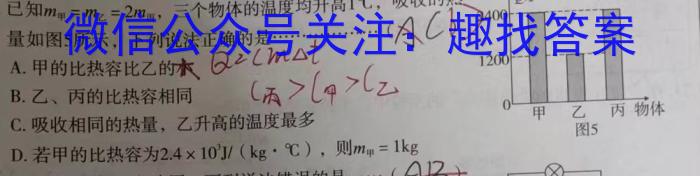 已知m甲=m =2m ,三个物体的温度均升高1℃,吸收的热
量如图5 说法正确的是 AC
微信公众号关注:趣找答案
A. 甲的比热容比乙的大 Q=cmΔt
B. 乙、丙的比热容相同 C丙>C甲>C乙
C. 吸收相同的热量,乙升高的温度最多
D. 若甲的比热容为2.4×10³J/(kg·℃),则m甲=1kg
2400
1200
0
甲 乙 丙 物体
图5